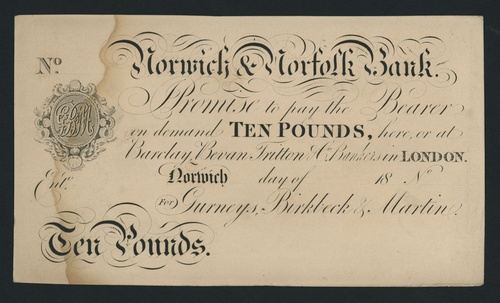 No. Norwich & Norfolk Bank.
Promise to pay the Bearer
on demand TEN POUNDS, here, or at
Barclay, Bevan, Tritton & Co. Bankers in LONDON.
Entd. Norwich day of 18 No
For Gurneys, Birkbeck & Martin.
Ten Pounds.